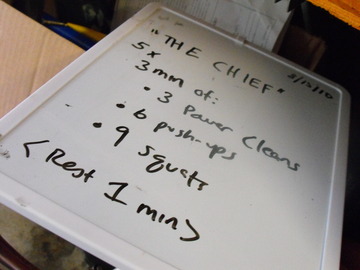 "THE CHIEF"
5x
3 min of:
• 3 Power Cleans
• 6 push-ups
• 9 squats
<Rest 1 min>